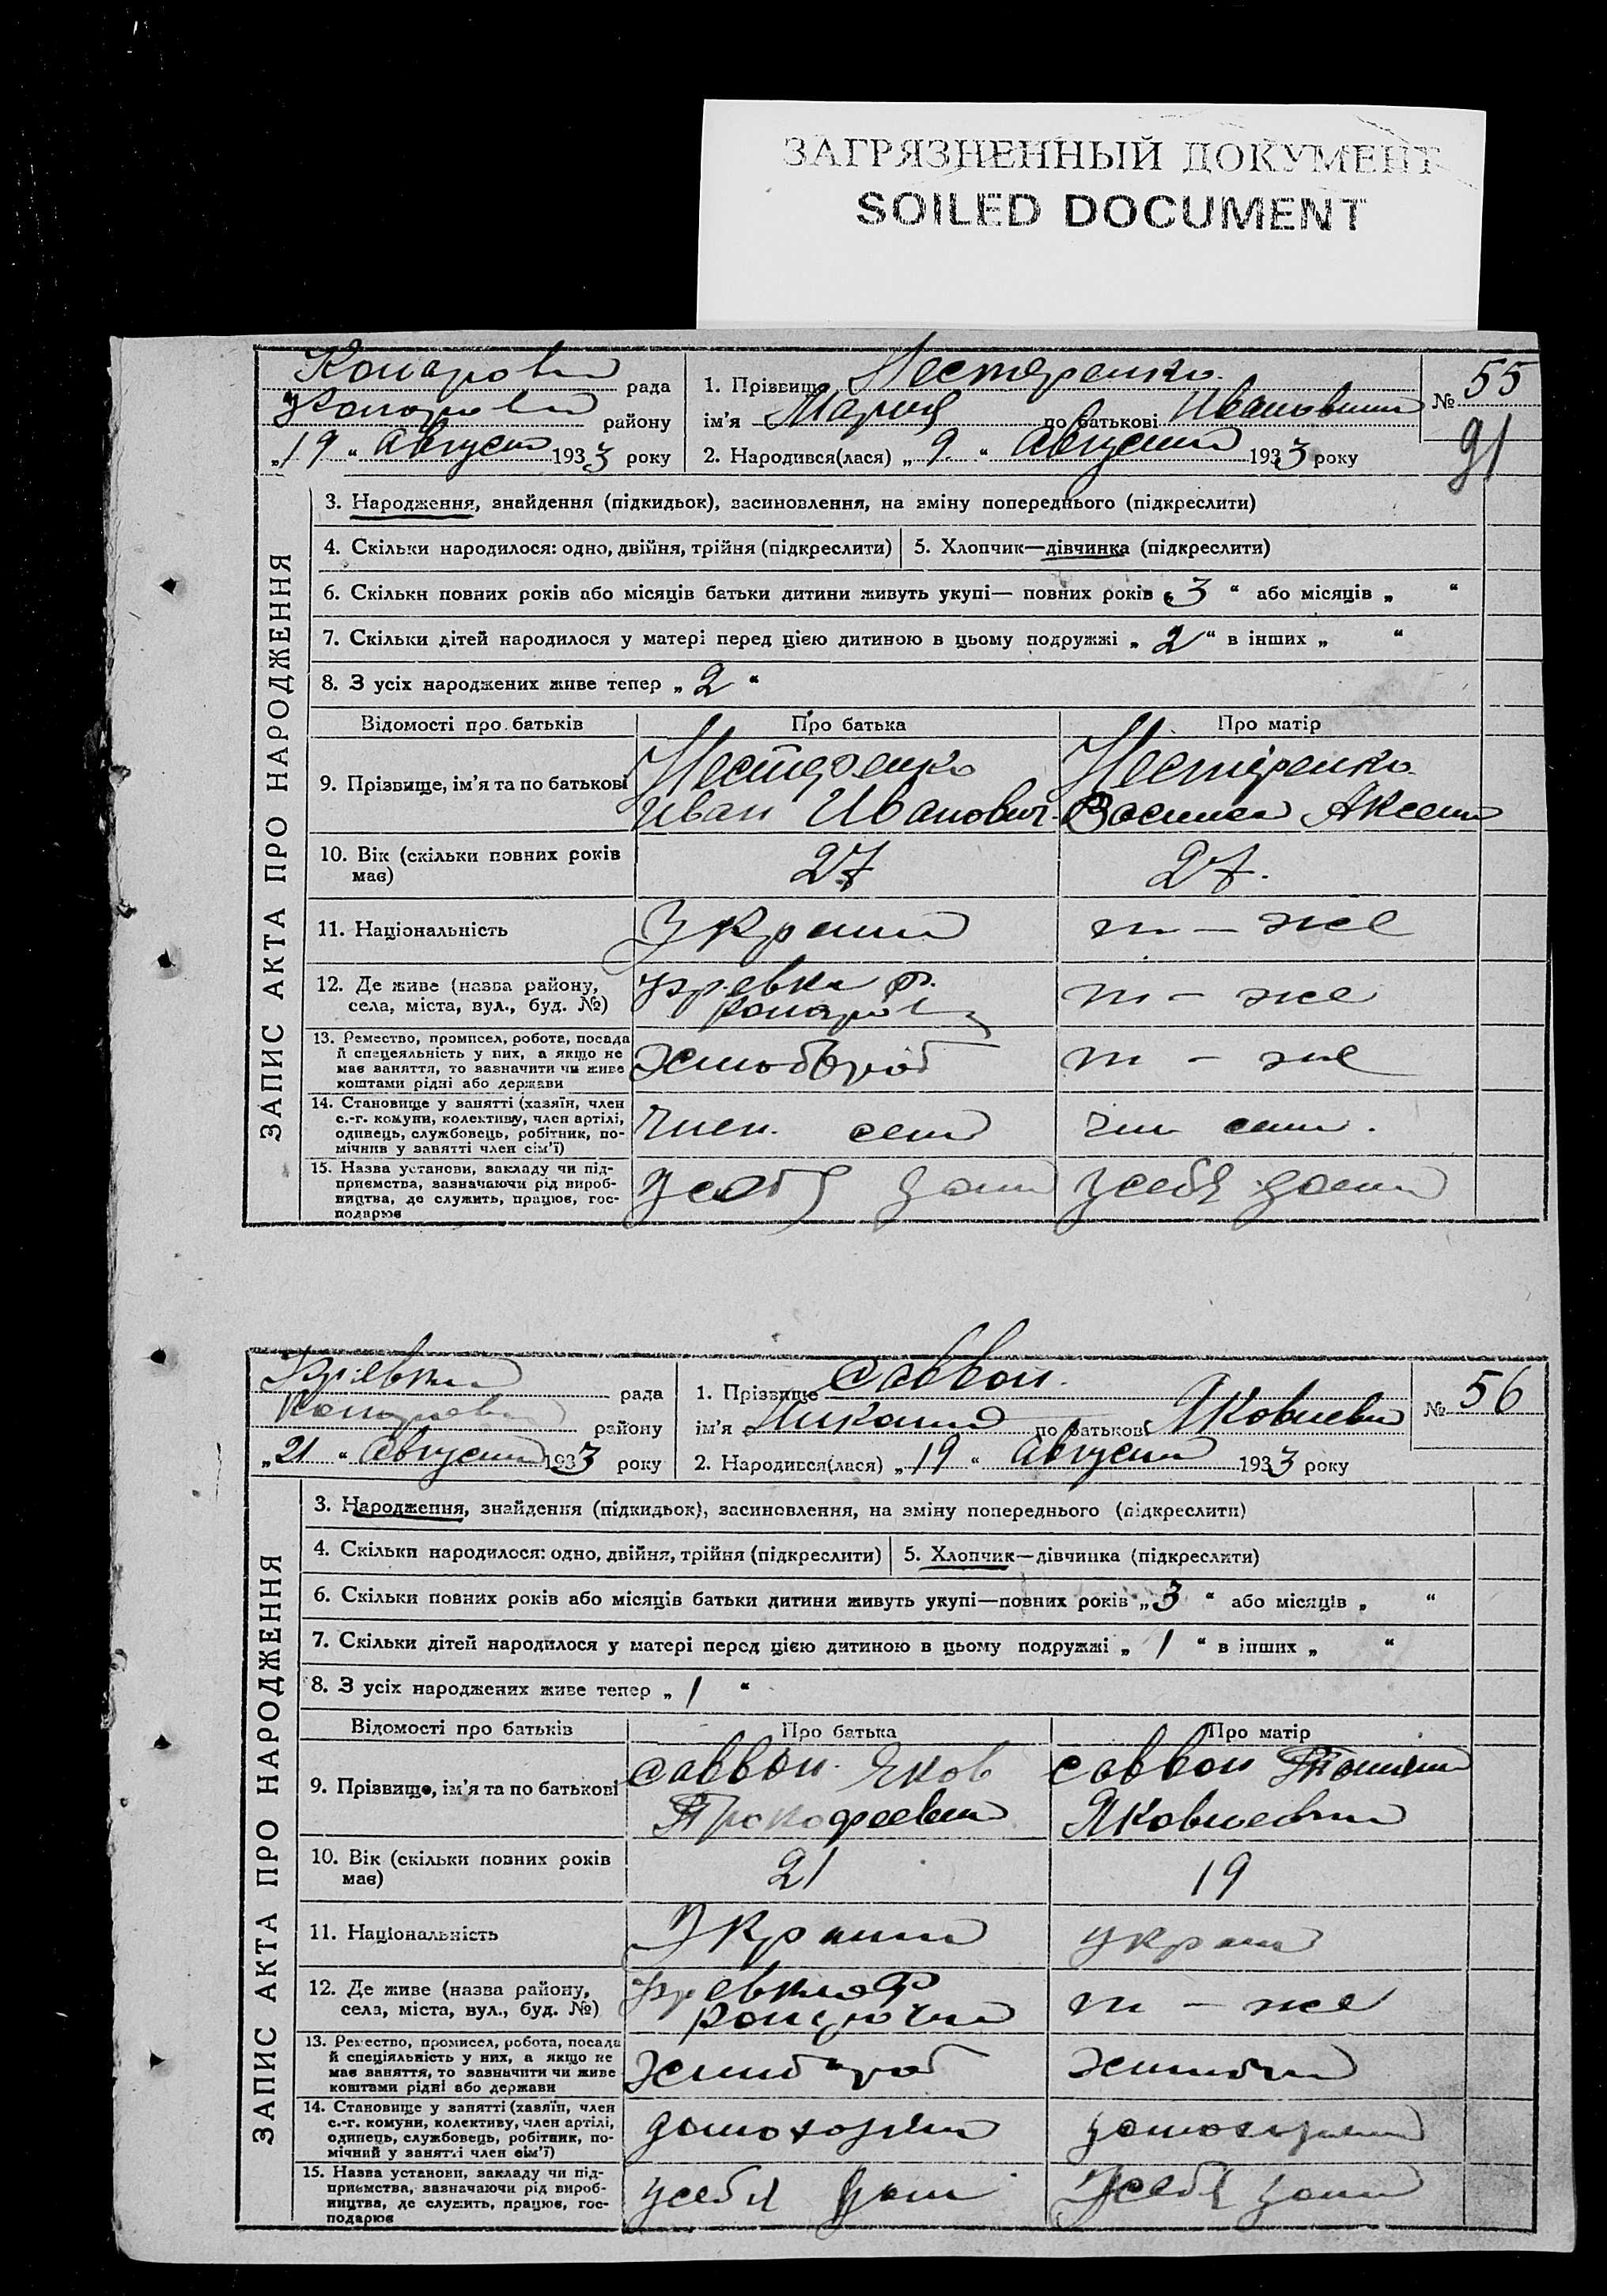 ЗАГРЯЗНЕННЫЙ ДОКУМЕНТ
SOILED DOCUMENT
рада
району
„19“ Август 1933 року
1. Прізвище Нестеренко
ім'я Мария по батькові Ивановна
2. Народився(лася) „9“ Августа 1933 року
№ 55
91
ЗАПИС АКТА ПРО НАРОДЖЕННЯ
3. Народження, знайдення (підкидьок), засиновлення, на зміну попереднього (підкреслити)
4. Скільки народилося: одно, двійня, трійня (підкреслити)
5. Хлопчик—дівчинка (підкреслити)
6. Скільки повних років або місяців батьки дитини живуть укупі— повних років „3“ або місяців „ “
7. Скільки дітей народилося у матері перед цією дитиною в цьому подружжі „2“ в інших „ “
8. З усіх народжених живе тепер „2“
Відомості про батьків
Про батька
Про матір
9. Прізвище, ім'я та по батькові
Нестеренко
Иван Иванович
Нестеренко
10. Вік (скільки повних років
має)
27
27.
11. Національність
Украин
т - же
12. Де живе (назва району,
села, міста, вул., буд. №)
т - же
13. Ремество, промисел, робота, посада
й спецеяльність у них, а якщо не
має заняття, то зазначити чи живе
коштами рідні або держави
т - же
14. Становище у занятті (хазяїн, член
с.-г. комуни, колективу, член артілі,
одинець, службовець, робітник, по-
мічник у занятті член сім'ї)
член сем
чле сем.
15. Назва установи, закладу чи під-
приємства, зазначаючи рід вироб-
ництва, де служить, працює, гос-
подарює
У себя дома
У себя дома
рада
району
„21“ Августа 1933 року
1. Прізвище Саввон
ім'я по батькові Яковлеви
2. Народився(лася) „19“ Августа 1933 року
№ 56
ЗАПИС АКТА ПРО НАРОДЖЕННЯ
3. Народження, знайдення (підкидьок), засиновлення, на зміну попереднього (підкреслити)
4. Скільки народилося: одно, двійня, трійня (підкреслити)
5. Хлопчик—дівчинка (підкреслити)
6. Скільки повних років або місяців батьки дитини живуть укупі—повних років „3“ або місяців „ “
7. Скільки дітей народилося у матері перед цією дитиною в цьому подружжі „1“ в інших „ “
8. З усіх народжених живе тепер „1“
Відомості про батьків
Про батька
Про матір
9. Прізвище, ім'я та по батькові
Саввон Яков
Прокофеевич
Саввон
Яковлевна
10. Вік (скільки повних років
має)
21
19
11. Національність
Украин
украин
12. Де живе (назва району,
села, міста, вул., буд. №)
т - же
13. Ремество, промисел, робота, посада
й спеціяльність у них, а якщо не
має заняття, то зазначити чи живе
коштами рідні або держави
14. Становище у занятті (хазяїн, член
с.-г. комуни, колективу, член артілі,
одинець, службовець, робітник, по-
мічний у занятті член сім'ї)
15. Назва установи, закладу чи під-
приємства, зазначаючи рід вироб-
ництва, де служить, працює, гос-
подарює
У себя дома
У себя дома